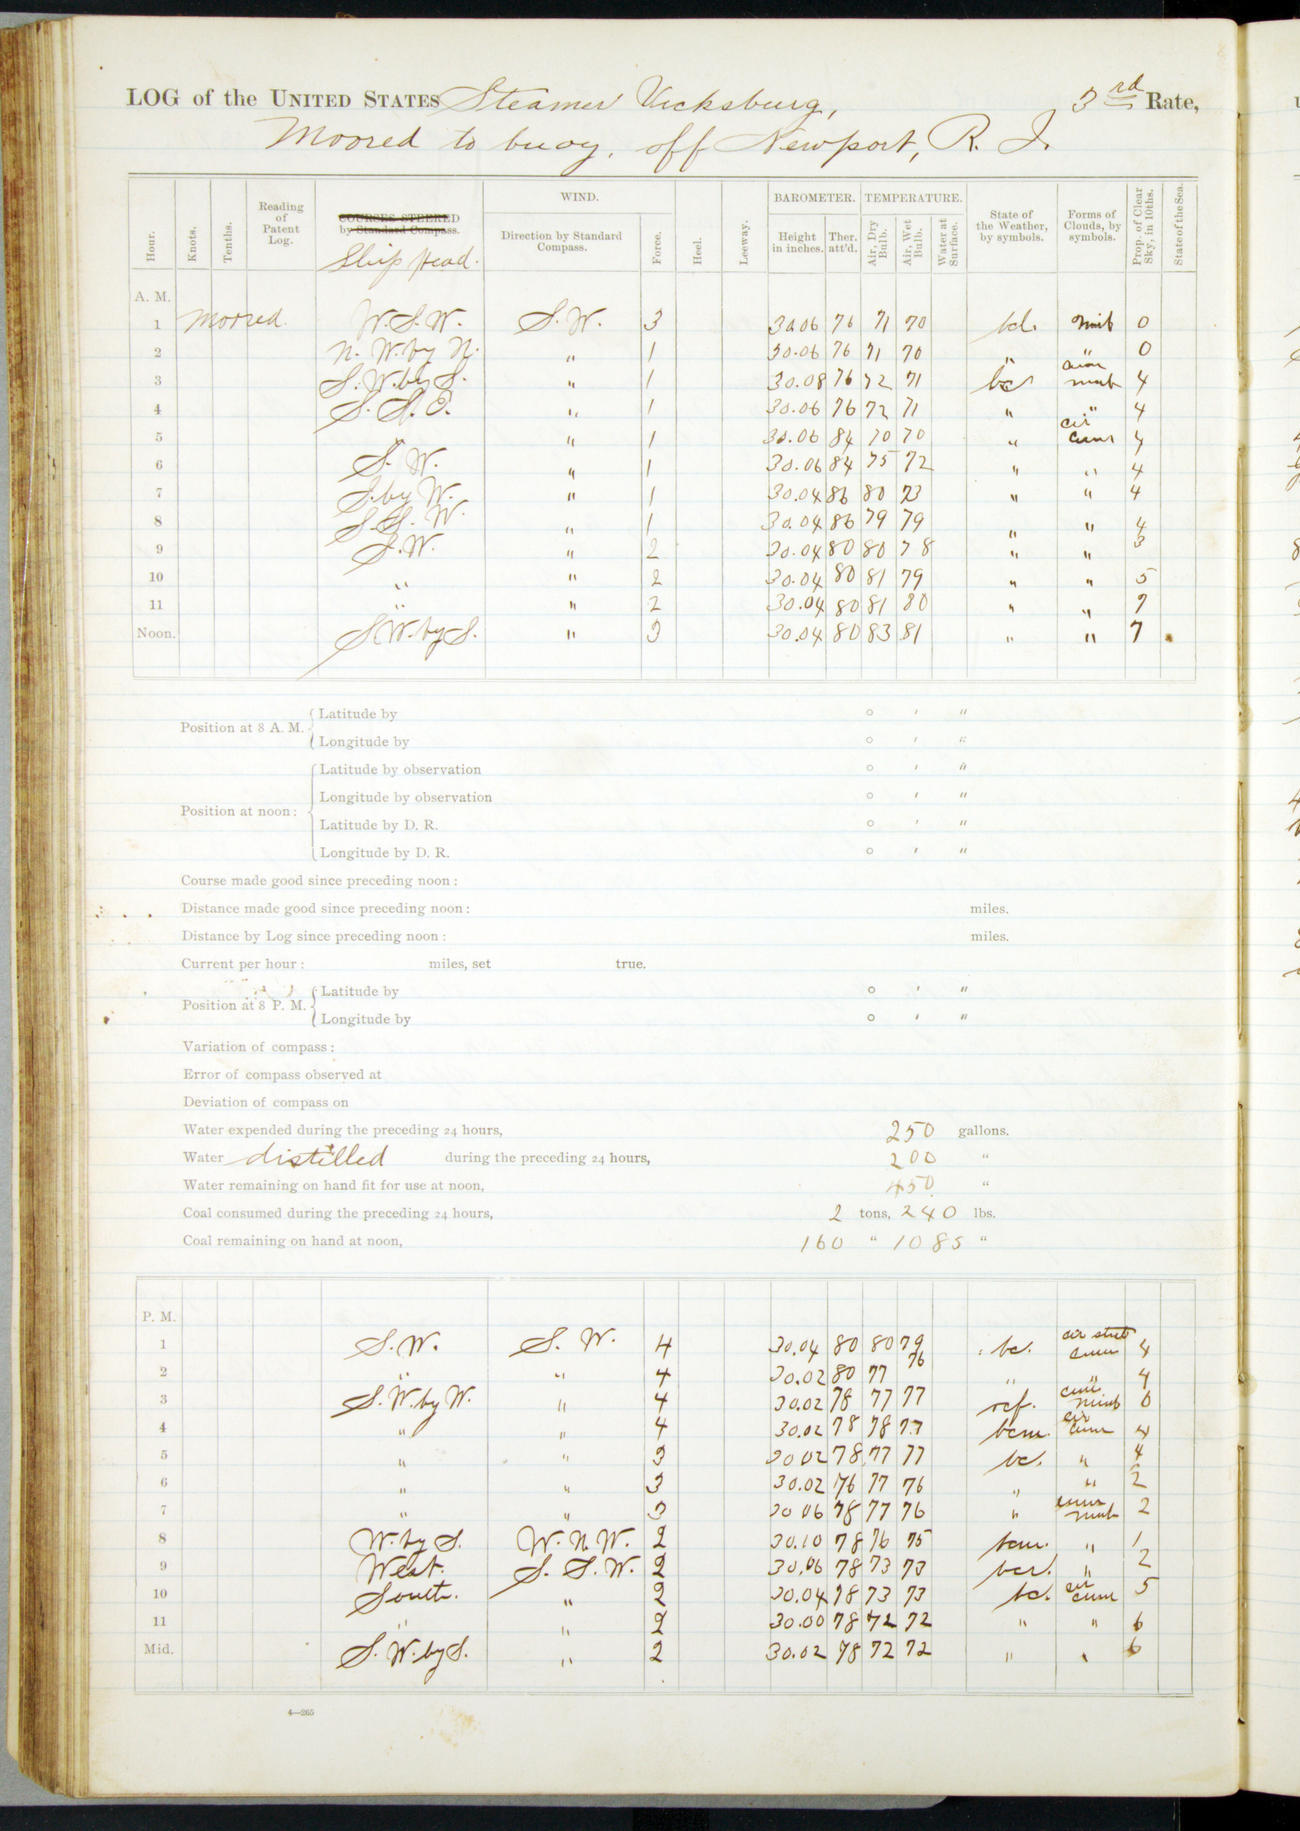 LOG of the UNITED STATES Steamer Vicksburg, 3rd Rate,
Moored to buoy, off Newport, R. I.
Hour. Knots. Tenths. Reading of Patent Log. COURSES STEERED by Standard Compass. Ship head. WIND. Direction by Standard Compass. Force. Heel. Leeway. BAROMETER. Height in inches. Ther. att'd. TEMPERATURE. Air, Dry Bulb. Air, Wet Bulb. Water at Surface. State of the Weather, by symbols. Forms of Clouds, by symbols. Prop. of Clear Sky, in 10ths. State of the Sea.
A. M.
1 Moored. W.S.W. S.W. 3 30.06 76 71 70 bd. Nimb 0
2 N. W. by N. " 1 30.06 76 71 70 " " 0
3 S. W. by S. " 1 30.08 76 72 71 bc cum nimb 4
4 S. S. E. " 1 30.06 76 72 71 " " 4
5 " 1 30.06 84 70 70 " cir cum 4
6 S. W. " 1 30.06 84 75 72 " " 4
7 S. by W. " 1 30.04 86 80 73 " " 4
8 S.S. W. " 1 30.04 86 79 79 " " 4
9 S.W. " 2 30.04 80 80 78 " " 3
10 " " 2 30.04 80 81 79 " " 5
11 " " 2 30.04 80 81 80 " " 7
Noon. S.W. by S. " 3 30.04 80 83 81 " " 7
Position at 8 A. M. Latitude by ° ′ ″
Longitude by ° ′ ″
Position at noon: Latitude by observation ° ′ ″
Longitude by observation ° ′ ″
Latitude by D. R. ° ′ ″
Longitude by D. R. ° ′ ″
Course made good since preceding noon:
Distance made good since preceding noon: miles.
Distance by Log since preceding noon: miles.
Current per hour: miles, set true.
Position at 8 P. M. Latitude by ° ′ ″
Longitude by ° ′ ″
Variation of compass:
Error of compass observed at
Deviation of compass on
Water expended during the preceding 24 hours, 250 gallons.
Water distilled during the preceding 24 hours, 200 "
Water remaining on hand fit for use at noon, 450 "
Coal consumed during the preceding 24 hours, 2 tons, 240 lbs.
Coal remaining on hand at noon, 160 " 1085 "
P. M.
1 S.W. S. W. 4 30.04 80 80 79 bc. cir strat cum 4
2 " " 4 30.02 80 77 76 " " 4
3 S. W. by W. " 4 30.02 78 77 77 rcf. cum nimb 0
4 " " 4 30.02 78 78 77 bcm. cir cum 4
5 " " 3 30 02 78 77 77 bc. " 4
6 " " 3 30.02 76 77 76 " " 2
7 " " 3 30 06 78 77 76 " cum nimb 2
8 W. by S. W. N. W. 2 30.10 78 76 75 bcm. " 1
9 West. S. S. W. 2 30.06 78 73 73 bcr. " 2
10 South. " 2 30.04 78 73 73 bc. cir cum 5
11 " " 2 30.00 78 72 72 " " 6
Mid. S. W. by S. " 2 30.02 78 72 72 " " 6
4—265